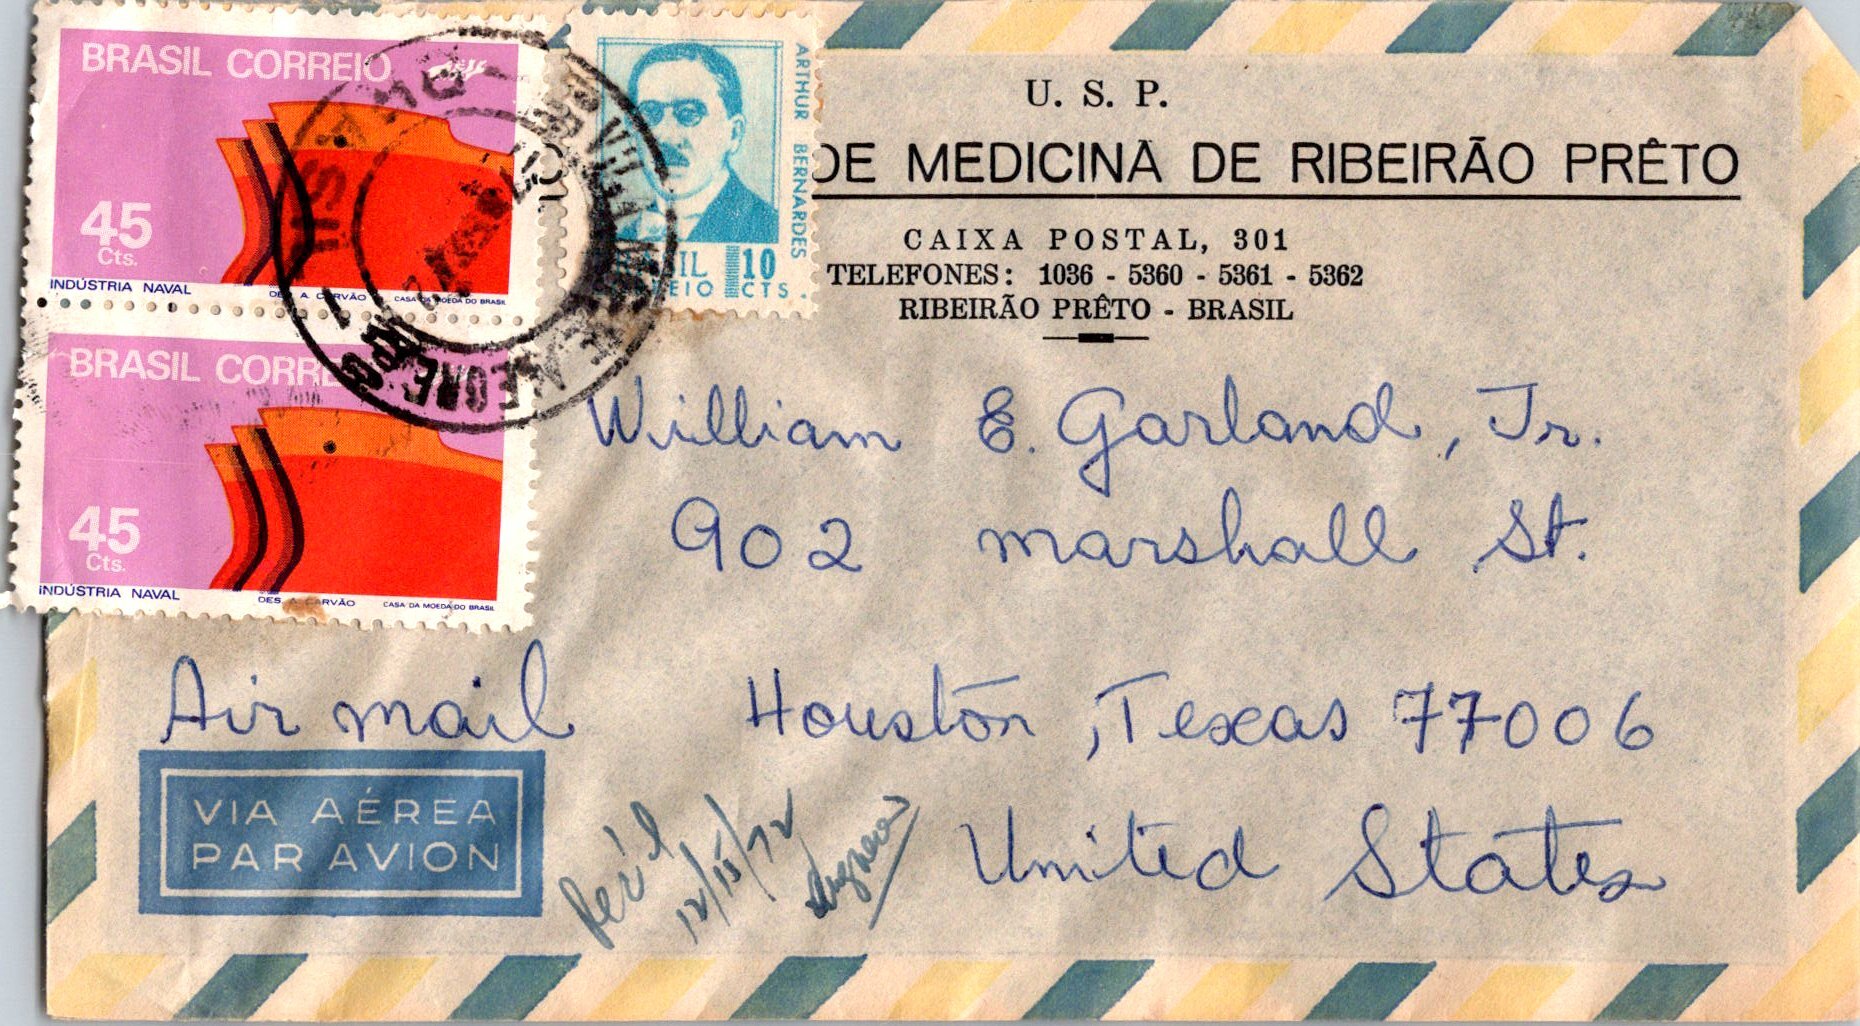 BRASIL CORREIO
45
Cts.
INDÚSTRIA NAVAL DES. A. CARVÃO CASA DA MOEDA DO BRASIL
BRASIL CORRE
45
Cts.
INDÚSTRIA NAVAL DES. A. CARVÃO CASA DA MOEDA DO BRASIL
ARTHUR BERNARDES
10
CTS.
VILA ALEGRE
U. S. P.
DE MEDICINA DE RIBEIRÃO PRÊTO
CAIXA POSTAL, 301
TELEFONES: 1036 - 5360 - 5361 - 5362
RIBEIRÃO PRÊTO - BRASIL
William E. Garland, Jr.
902 Marshall St.
Houston, Texas 77006
United States
Air mail
VIA AÉREA
PAR AVION
Rec'd
12/15/72